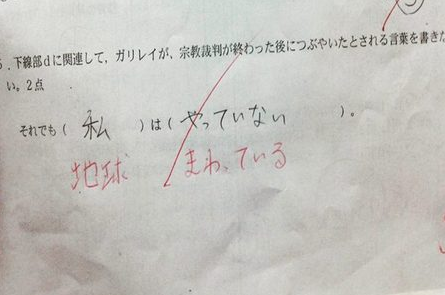 5．下線部ｄに関連して，ガリレイが，宗教裁判が終わった後につぶやいたとされる言葉を書きな
い。2点
それでも（ 私 ）は（ やっていない ）。
地球 まわっている